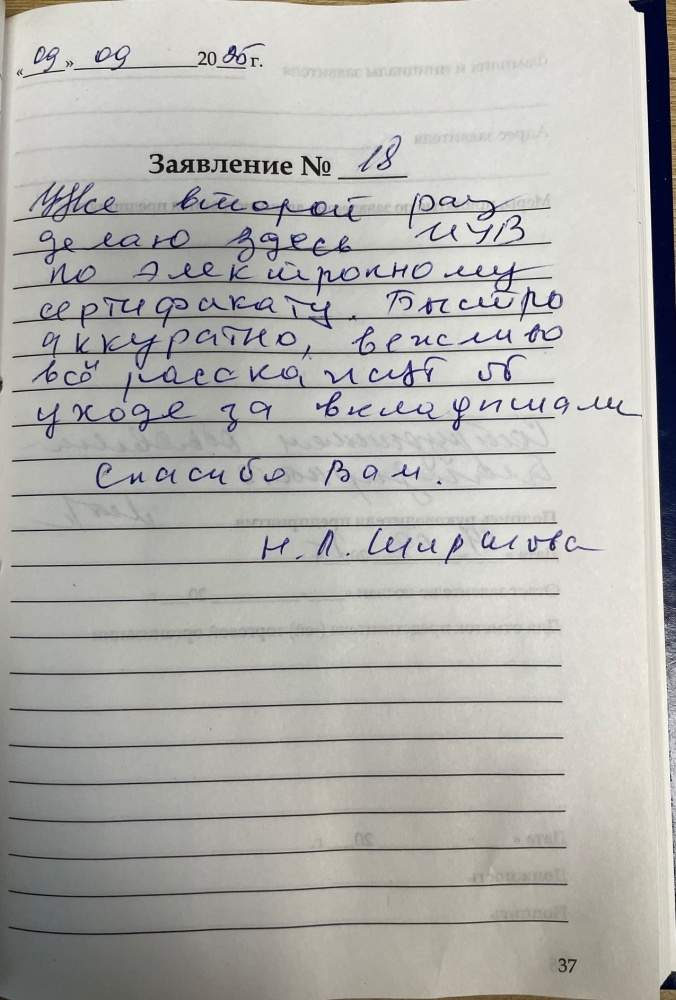 «09» 09 2025 г.
Заявление № 18
Уже второй раз
делаю здесь ИУВ
по электронному
сертификату. Быстро
аккуратно, вежливо
всё расскажут об
уходе за вкладышами
Спасибо Вам.
Н. Л. Ширшова
37